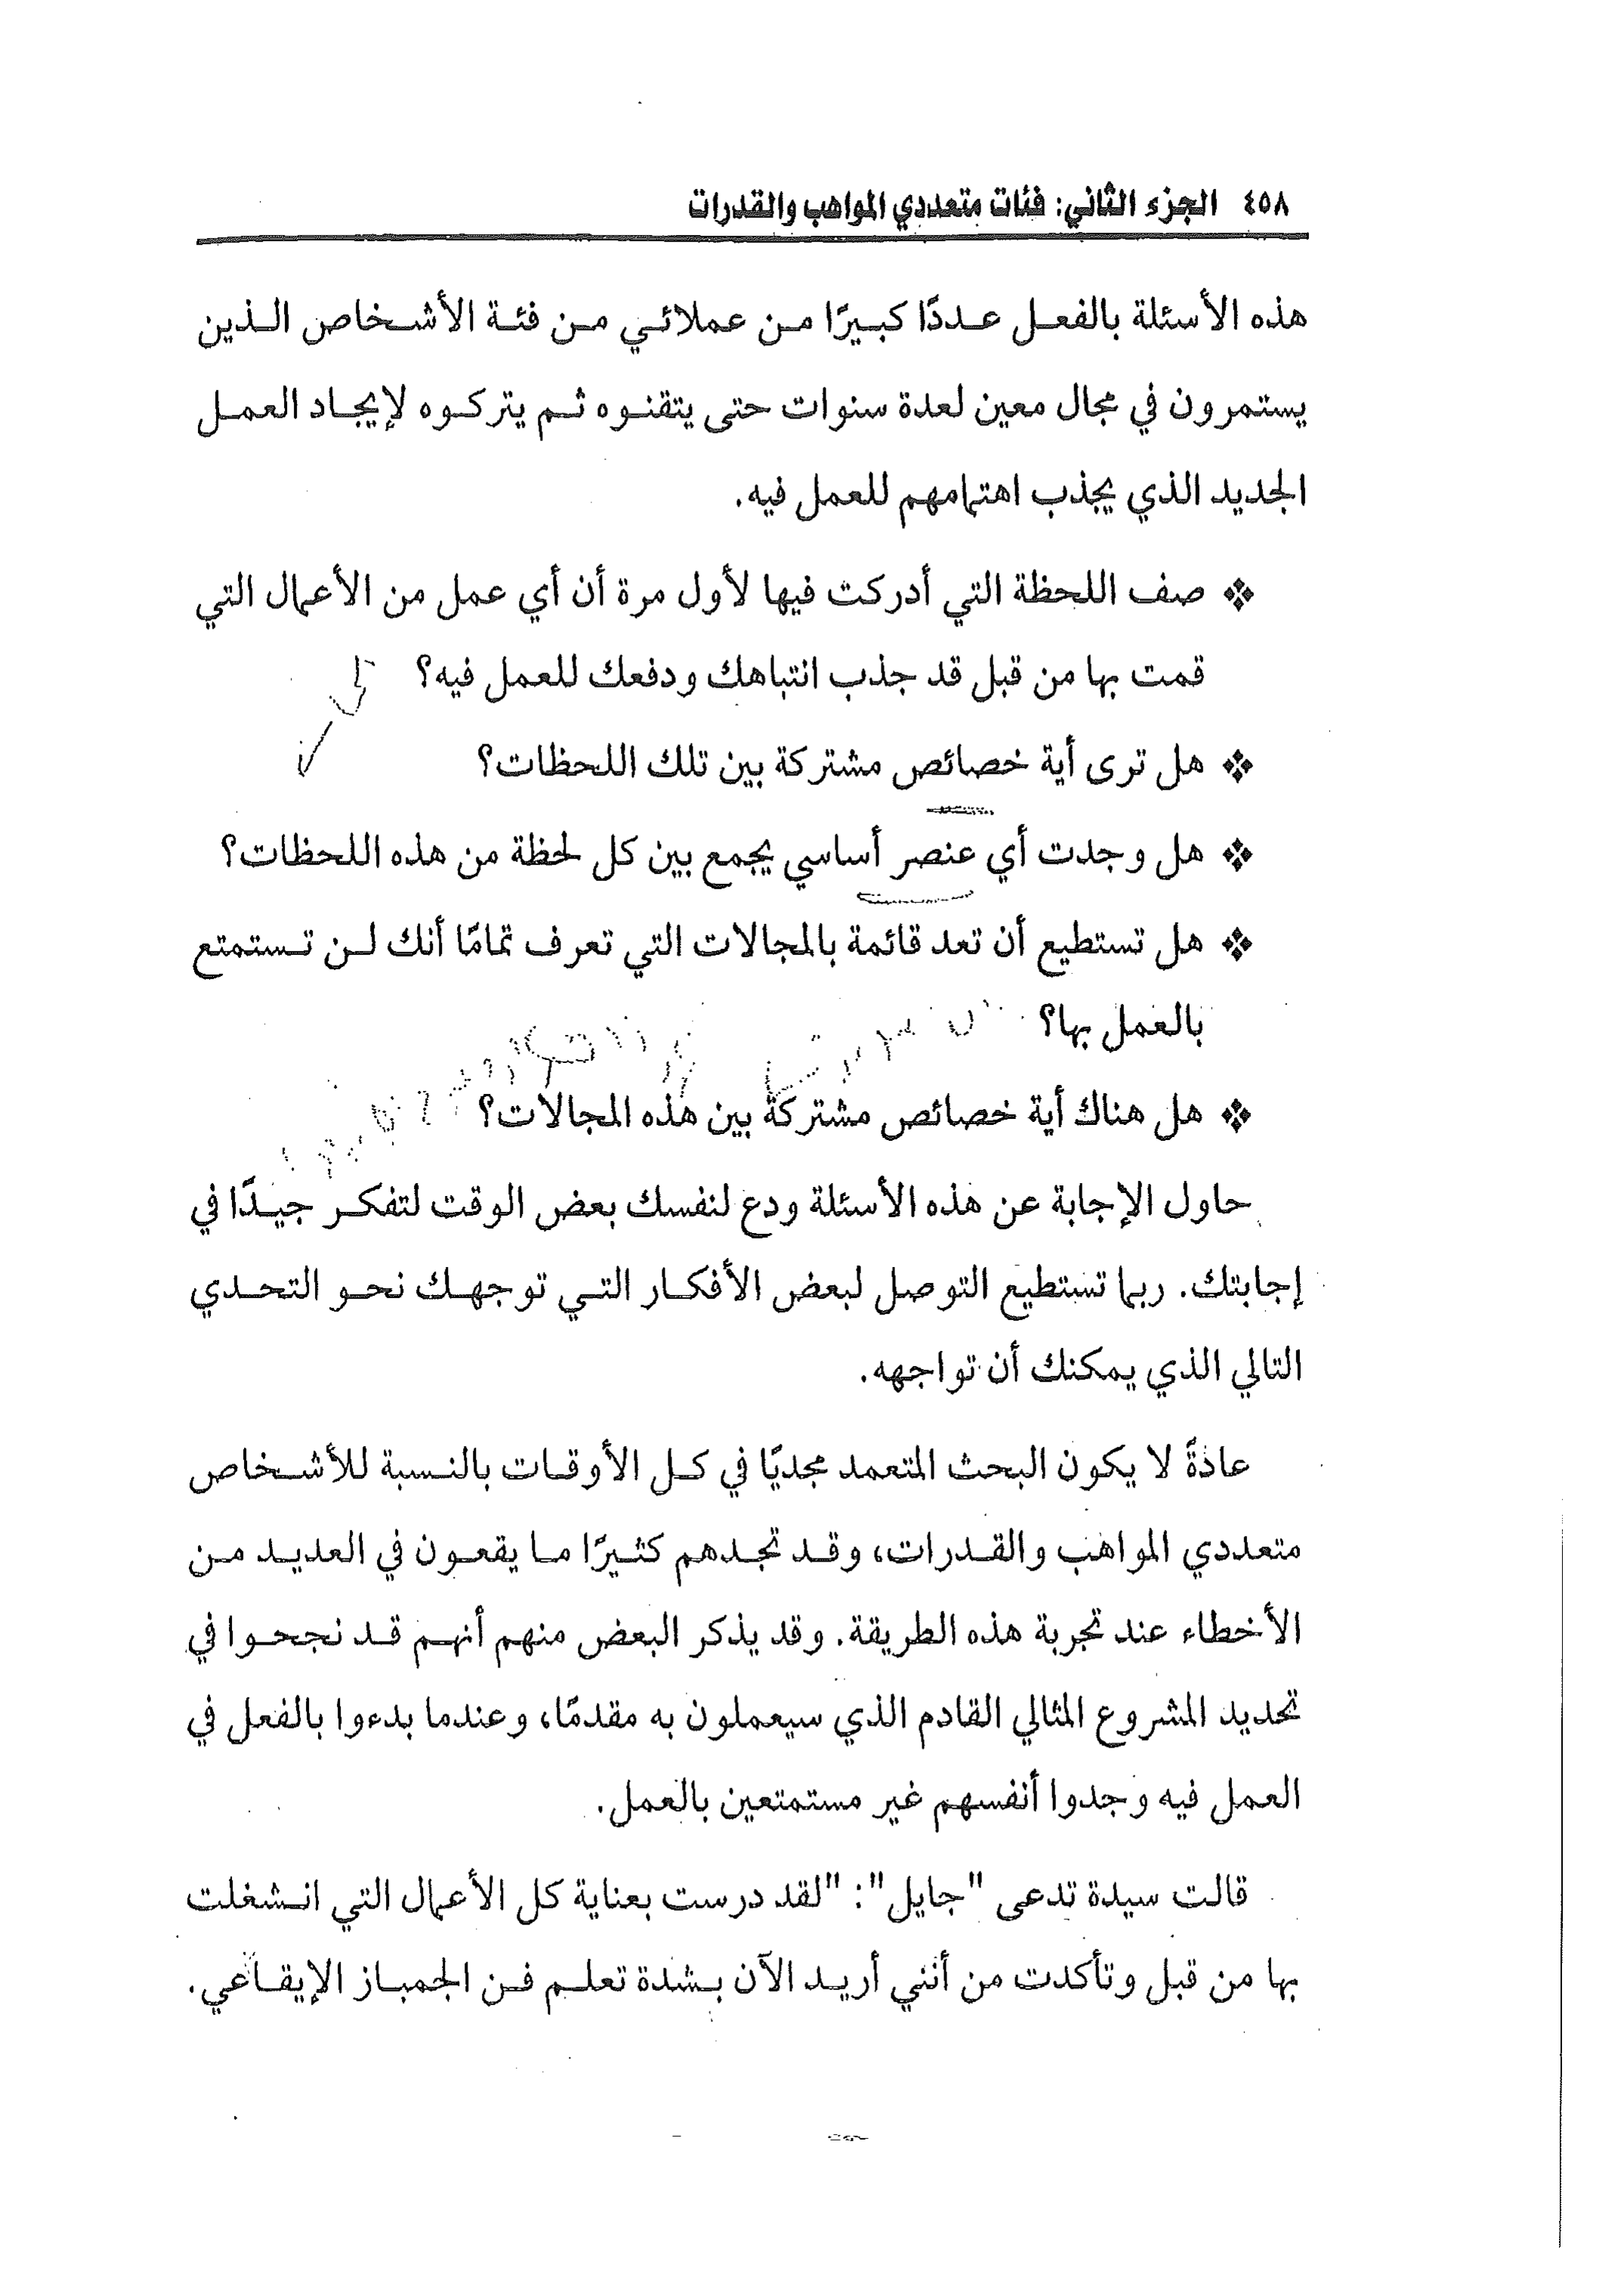 ٤٥٨ الجزء الثاني: فئات متعددي المواهب والقدرات
هذه الأسئلة بالفعل عددًا كبيرًا من عملائي من فئة الأشخاص الذين
يستمرون في مجال معين لعدة سنوات حتى يتقنوه ثم يتركوه لإيجاد العمل
الجديد الذي يجذب اهتمامهم للعمل فيه.
❖ صف اللحظة التي أدركت فيها لأول مرة أن أي عمل من الأعمال التي
قمت بها من قبل قد جذب انتباهك ودفعك للعمل فيه؟
❖ هل ترى أية خصائص مشتركة بين تلك اللحظات؟
❖ هل وجدت أي عنصر أساسي يجمع بين كل لحظة من هذه اللحظات؟
❖ هل تستطيع أن تعد قائمة بالمجالات التي تعرف تمامًا أنك لن تستمتع
بالعمل بها؟
❖ هل هناك أية خصائص مشتركة بين هذه المجالات؟
حاول الإجابة عن هذه الأسئلة ودع لنفسك بعض الوقت لتفكر جيدًا في
إجابتك. ربما تستطيع التوصل لبعض الأفكار التي توجهك نحو التحدي
التالي الذي يمكنك أن تواجهه.
عادةً لا يكون البحث المتعمد مجديًا في كل الأوقات بالنسبة للأشخاص
متعددي المواهب والقدرات، وقد تجدهم كثيرًا ما يقعون في العديد من
الأخطاء عند تجربة هذه الطريقة. وقد يذكر البعض منهم أنهم قد نجحوا في
تحديد المشروع المثالي القادم الذي سيعملون به مقدمًا، وعندما بدءوا بالفعل في
العمل فيه وجدوا أنفسهم غير مستمتعين بالعمل.
قالت سيدة تدعى "جايل": "لقد درست بعناية كل الأعمال التي انشغلت
بها من قبل وتأكدت من أنني أريد الآن بشدة تعلم فن الجمباز الإيقاعي.